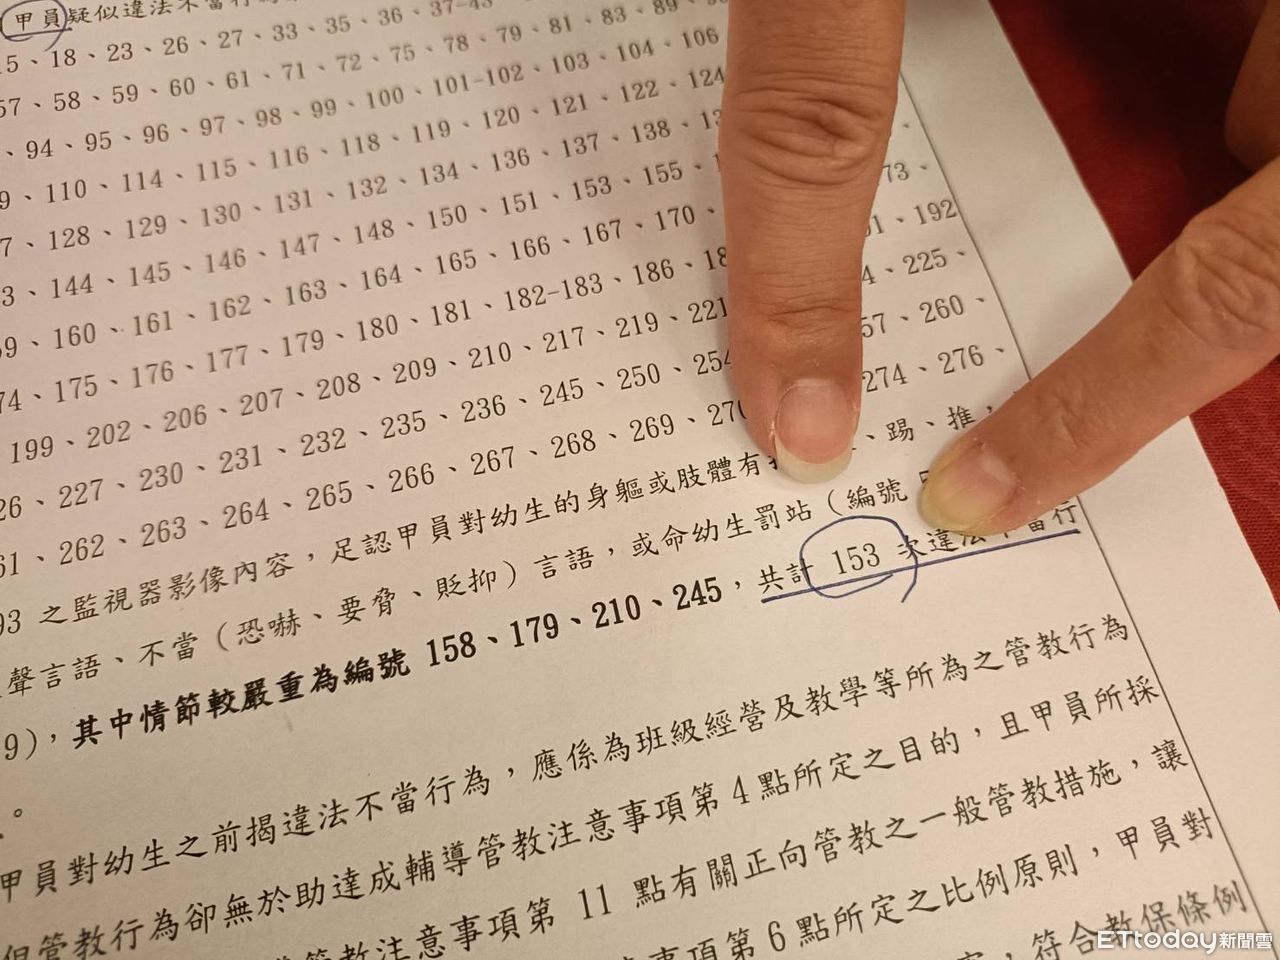 甲員疑似違法不當行為
15、18、23、26、27、33、35、36、37-43
57、58、59、60、61、71、72、75、78、79、81、83、89、
、94、95、96、97、98、99、100、101-102、103、104、106
9、110、114、115、116、118、119、120、121、122、124
7、128、129、130、131、132、134、136、137、138、
3、144、145、146、147、148、150、151、153、155、
59、160、161、162、163、164、165、166、167、170、 73、
74、175、176、177、179、180、181、182-183、186、 91、192
、199、202、206、207、208、209、210、217、219、221 4、225、
26、227、230、231、232、235、236、245、250、254 57、260、
61、262、263、264、265、266、267、268、269、270 274、276、
93 之監視器影像內容，足認甲員對幼生的身軀或肢體有 、踢、推，
聲言語、不當（恐嚇、要脅、貶抑）言語，或命幼生罰站（編號
9），其中情節較嚴重為編號 158、179、210、245，共計 153 次違法不當行
。
甲員對幼生之前揭違法不當行為，應係為班級經營及教學等所為之管教行為
但管教行為卻無於助達成輔導管教注意事項第 4 點所定之目的，且甲員所採
管教注意事項第 11 點有關正向管教之一般管教措施，讓
事項第 6 點所定之比例原則，甲員對
，符合教保條例
ETtoday新聞雲